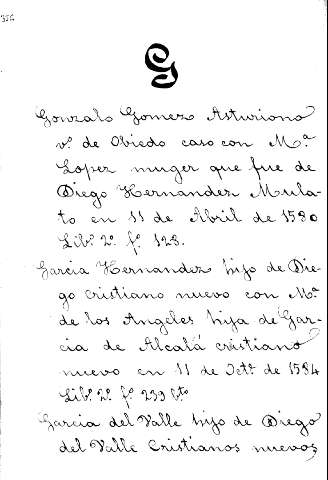 356
G
Gonzalo Gomez Asturiono
vº de Obiedo caso con Mª
Lopez muger que fue de
Diego Hernandez Mula-
to en 11 de Abril de 1580
Libº 2º fº 128.
Garcia Hernandez hijo de Die-
go cristiano nuevo con Mª
de los Angeles hija de Gar-
cia de Alcalá cristiano
nuevo en 11 de Octe de 1584
Libº 2º fº 233 bto
Garcia del Valle hijo de Diego
del Valle Cristianos nuevos